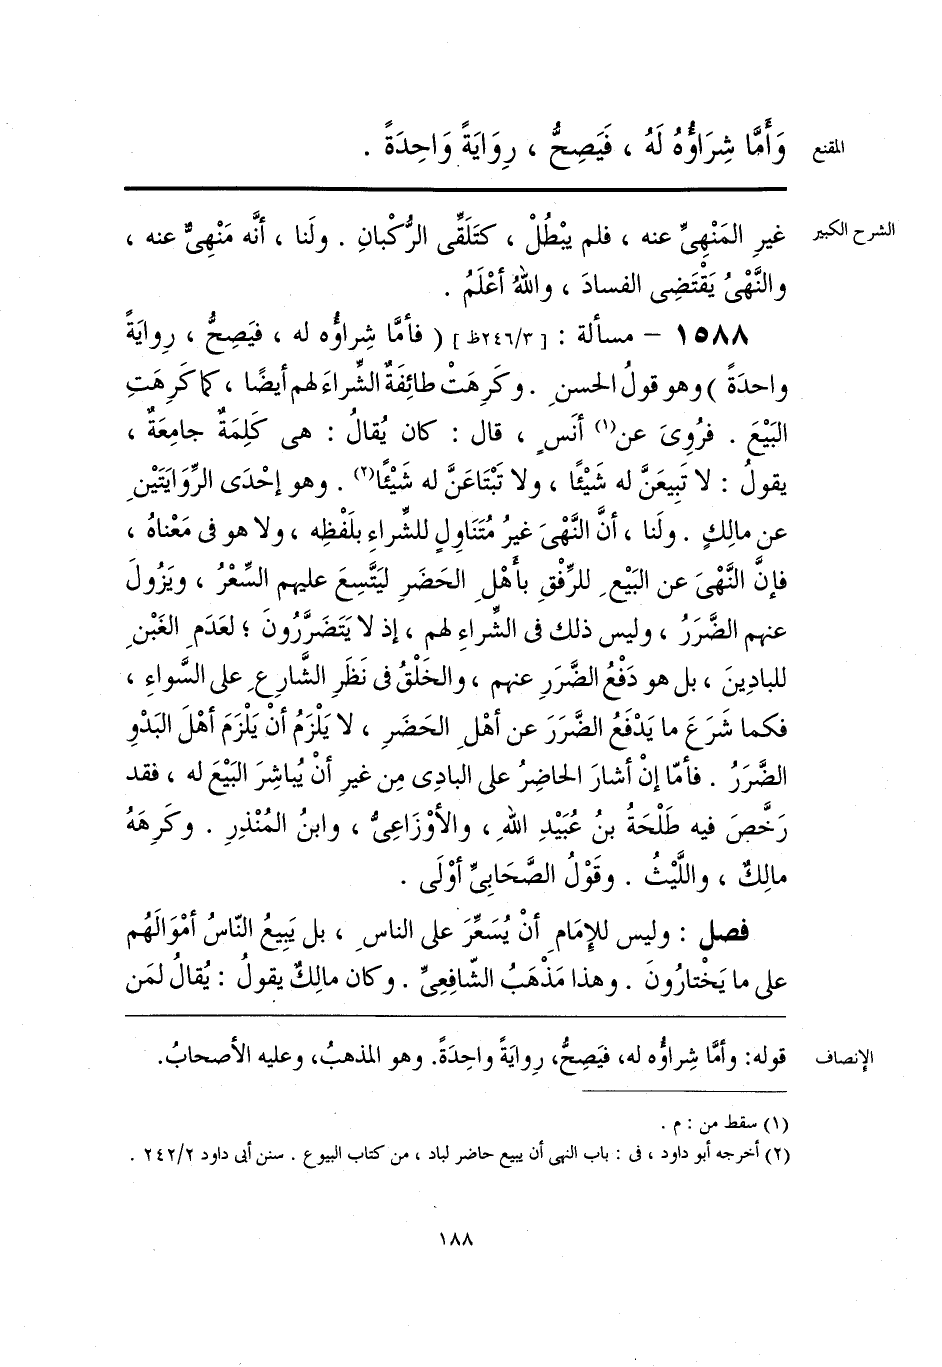 المقنع
وَأَمَّا شِرَاؤُهُ لَهُ ، فَيَصِحُّ ، رِوَايَةً وَاحِدَةً .
الشرح الكبير
غيرِ المَنْهِىِّ عنه ، فلم يَبْطُلْ ، كتَلَقِّى الرُّكْبانِ . ولَنا ، أنَّه مَنْهِىٌّ عنه ،
والنَّهْىُ يَقْتَضِى الفسادَ ، واللهُ أعْلَمُ .
١٥٨٨ – مسألة : [ ٢٤٦/٣ظ ] ( فأمَّا شِراؤُه له ، فيَصِحُّ ، رِوايَةً
واحدَةً ) وهو قولُ الحسنِ . وكَرِهَتْ طائِفَةٌ الشِّراءَ لهم أيضًا ، كما كَرِهَتِ
البَيْعَ . فرُوِىَ عن(١) أنَسٍ ، قال : كان يُقالُ : هى كَلِمَةٌ جامِعَةٌ ،
يقولُ : لا تَبِيعَنَّ له شَيْئًا ، ولا تَبْتَاعَنَّ له شَيْئًا(٢) . وهو إحْدَى الرِّوَايَتَيْنِ
عن مالِكٍ . ولَنا ، أنَّ النَّهْىَ غيرُ مُتَنَاوِلٍ للشِّراءِ بلَفْظِه ، ولا هو فى مَعْناهُ ،
فإنَّ النَّهْىَ عن البَيْعِ للرِّفْقِ بأَهْلِ الحَضَرِ ليَتَّسِعَ عليهم السِّعْرُ ، ويَزُولَ
عنهم الضَّرَرُ ، وليس ذلك فى الشِّراءِ لهم ، إذ لا يَتَضَرَّرُونَ ؛ لعَدَمِ الغَبْنِ
للبادِينَ ، بل هو دَفْعُ الضَّرَرِ عنهم ، والخَلْقُ فى نَظَرِ الشَّارِعِ على السَّواءِ ،
فكما شَرَعَ ما يَدْفَعُ الضَّرَرَ عن أهْلِ الحَضَرِ ، لا يَلْزَمُ أنْ يَلْزَمَ أهْلَ البَدْوِ
الضَّرَرُ . فأمّا إنْ أشارَ الحاضِرُ على البادِى مِن غيرِ أنْ يُباشِرَ البَيْعَ له ، فقد
رَخَّصَ فيه طَلْحَةُ بنُ عُبَيْدِ اللهِ ، والأوْزَاعِىُّ ، وابنُ المُنْذِرِ . وكَرِهَهُ
مالِكٌ ، واللَّيْثُ . وقَوْلُ الصَّحَابِىِّ أوْلَى .
فصل : وليس للإمَامِ أنْ يُسَعِّرَ على الناسِ ، بل يَبِيعُ النّاسُ أمْوَالَهُم
على ما يَخْتارُونَ . وهذا مَذْهَبُ الشّافِعِىِّ . وكان مالِكٌ يقولُ : يُقالُ لمَن
الإنصاف
قوله: وأمَّا شِراؤُه له، فيَصِحُّ، رِوايَةً واحِدَةً. وهو المذهبُ، وعليه الأصحابُ.
(١) سقط من : م .
(٢) أخرجه أبو داود ، فى : باب النهى أن يبيع حاضر لباد ، من كتاب البيوع . سنن أبى داود ٢٤٢/٢ .
١٨٨